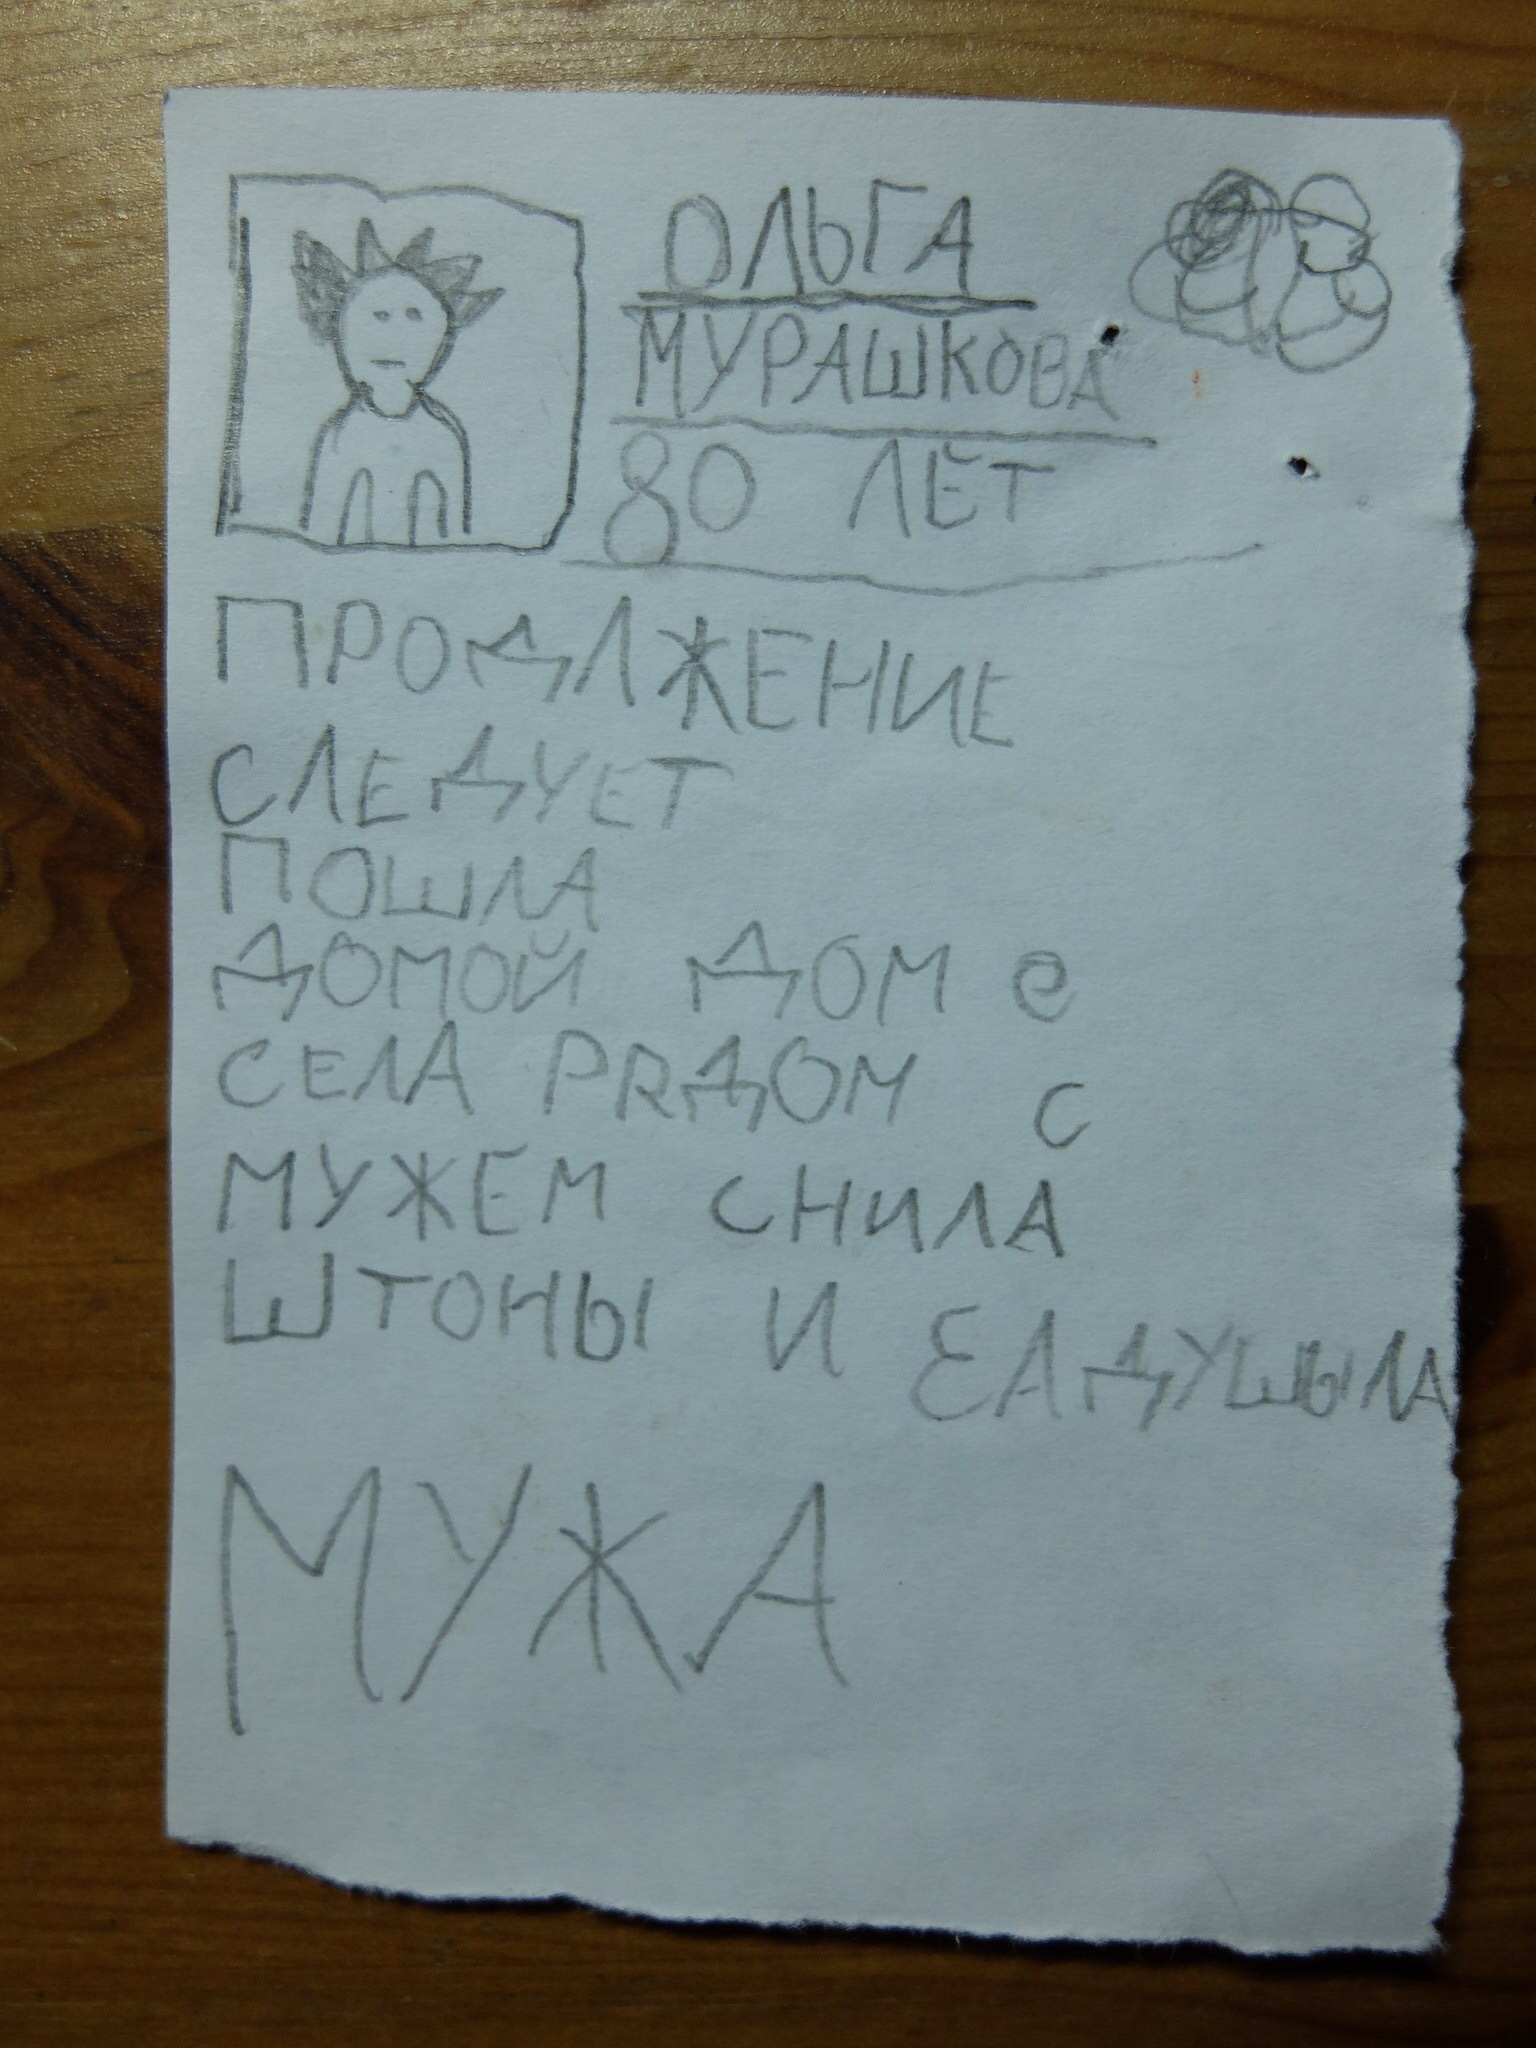 ОЛЬГА
МУРАШКОВА
80 ЛЕТ
ПРОДЛЖЕНИЕ
СЛЕДУЕТ
ПОШЛА
ДОМОЙ ДОМ е
СЕЛА РRДОМ С
МУЖЕМ СНИЛА
ШТОНЫ И ЕАДУШЫЛА
МУЖА